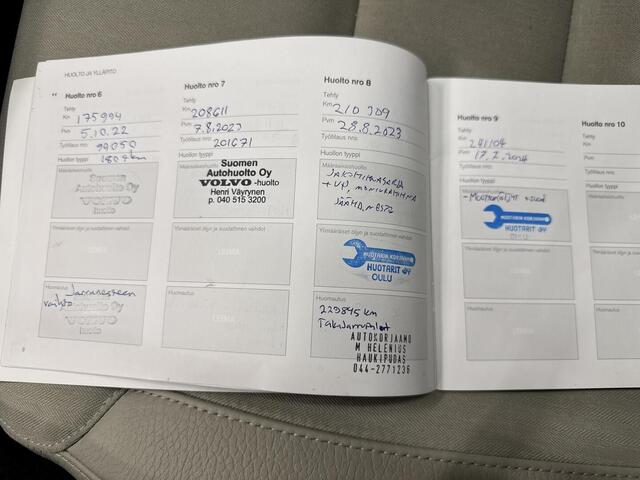 HUOLTO JA YLLÄPITO
Huolto nro 6
Tehty
Km 175994
Pvm 5.10.22
Työtilaus nro: 99050
Huollon tyyppi
180 tkm
Suomen
Autohuolto Oy
VOLVO
huolto
Ylimääräiset öljyn ja suodattimen vaihdot
LEIMA
Huomautus
Jarrunesteen
vaihto
Autohuolto Oy
VOLVO
huolto
8
Huolto nro 7
Tehty
Km 208611
Pvm 7.8.2023
Työtilaus nro: 201671
Huollon tyyppi
Määräaikaishuolto
Suomen
Autohuolto Oy
VOLVO-huolto
Henri Väyrynen
p. 040 515 3200
Ylimääräiset öljyn ja suodattimen vaihdot
LEIMA
Huomautus
LEIMA
Huolto nro 8
Tehty
Km 210 309
Pvm 28.8.2023
Työtilaus nro:
Huollon tyyppi
Määräaikaishuolto
JAKOHIHNASARJA
+ VP, MONIURAHIHNA
JÄÄHD.NESTE
Ylimääräiset öljyn ja suodattimen vaihdot
HUOTARIN KORJAAMO
HUOTARIT OY
OULU
Huomautus
229845 km
Takajarrupalat
AUTOKORJAAMO
M HELENIUS
HAUKIPUDAS
044-2771236
Huolto nro 9
Tehty
Km 241104
Pvm 17.2.2024
Työtilaus nro:
Huollon tyyppi
- Moottoriöljyt + suod
HUOTARIN KORJAAMO
HUOTARIT OY
OULU
Huolto nro 10
Tehty
Km
Pvm
Työtilaus nro:
Huollon tyyppi